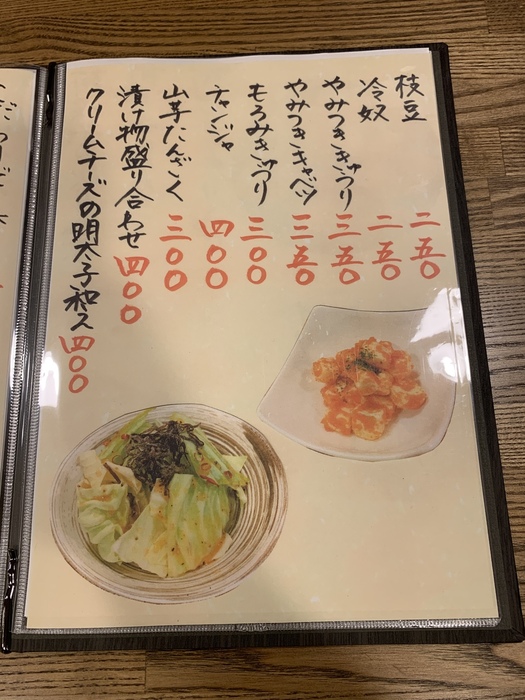 枝豆 二五〇
冷奴 二五〇
やみつききゅうり 三五〇
やみつきキャベツ 三五〇
もろみきゅうり 三〇〇
チャンジャ 四〇〇
山芋たんざく 三〇〇
漬け物盛り合わせ 四〇〇
クリームチーズの明太子和え 四〇〇